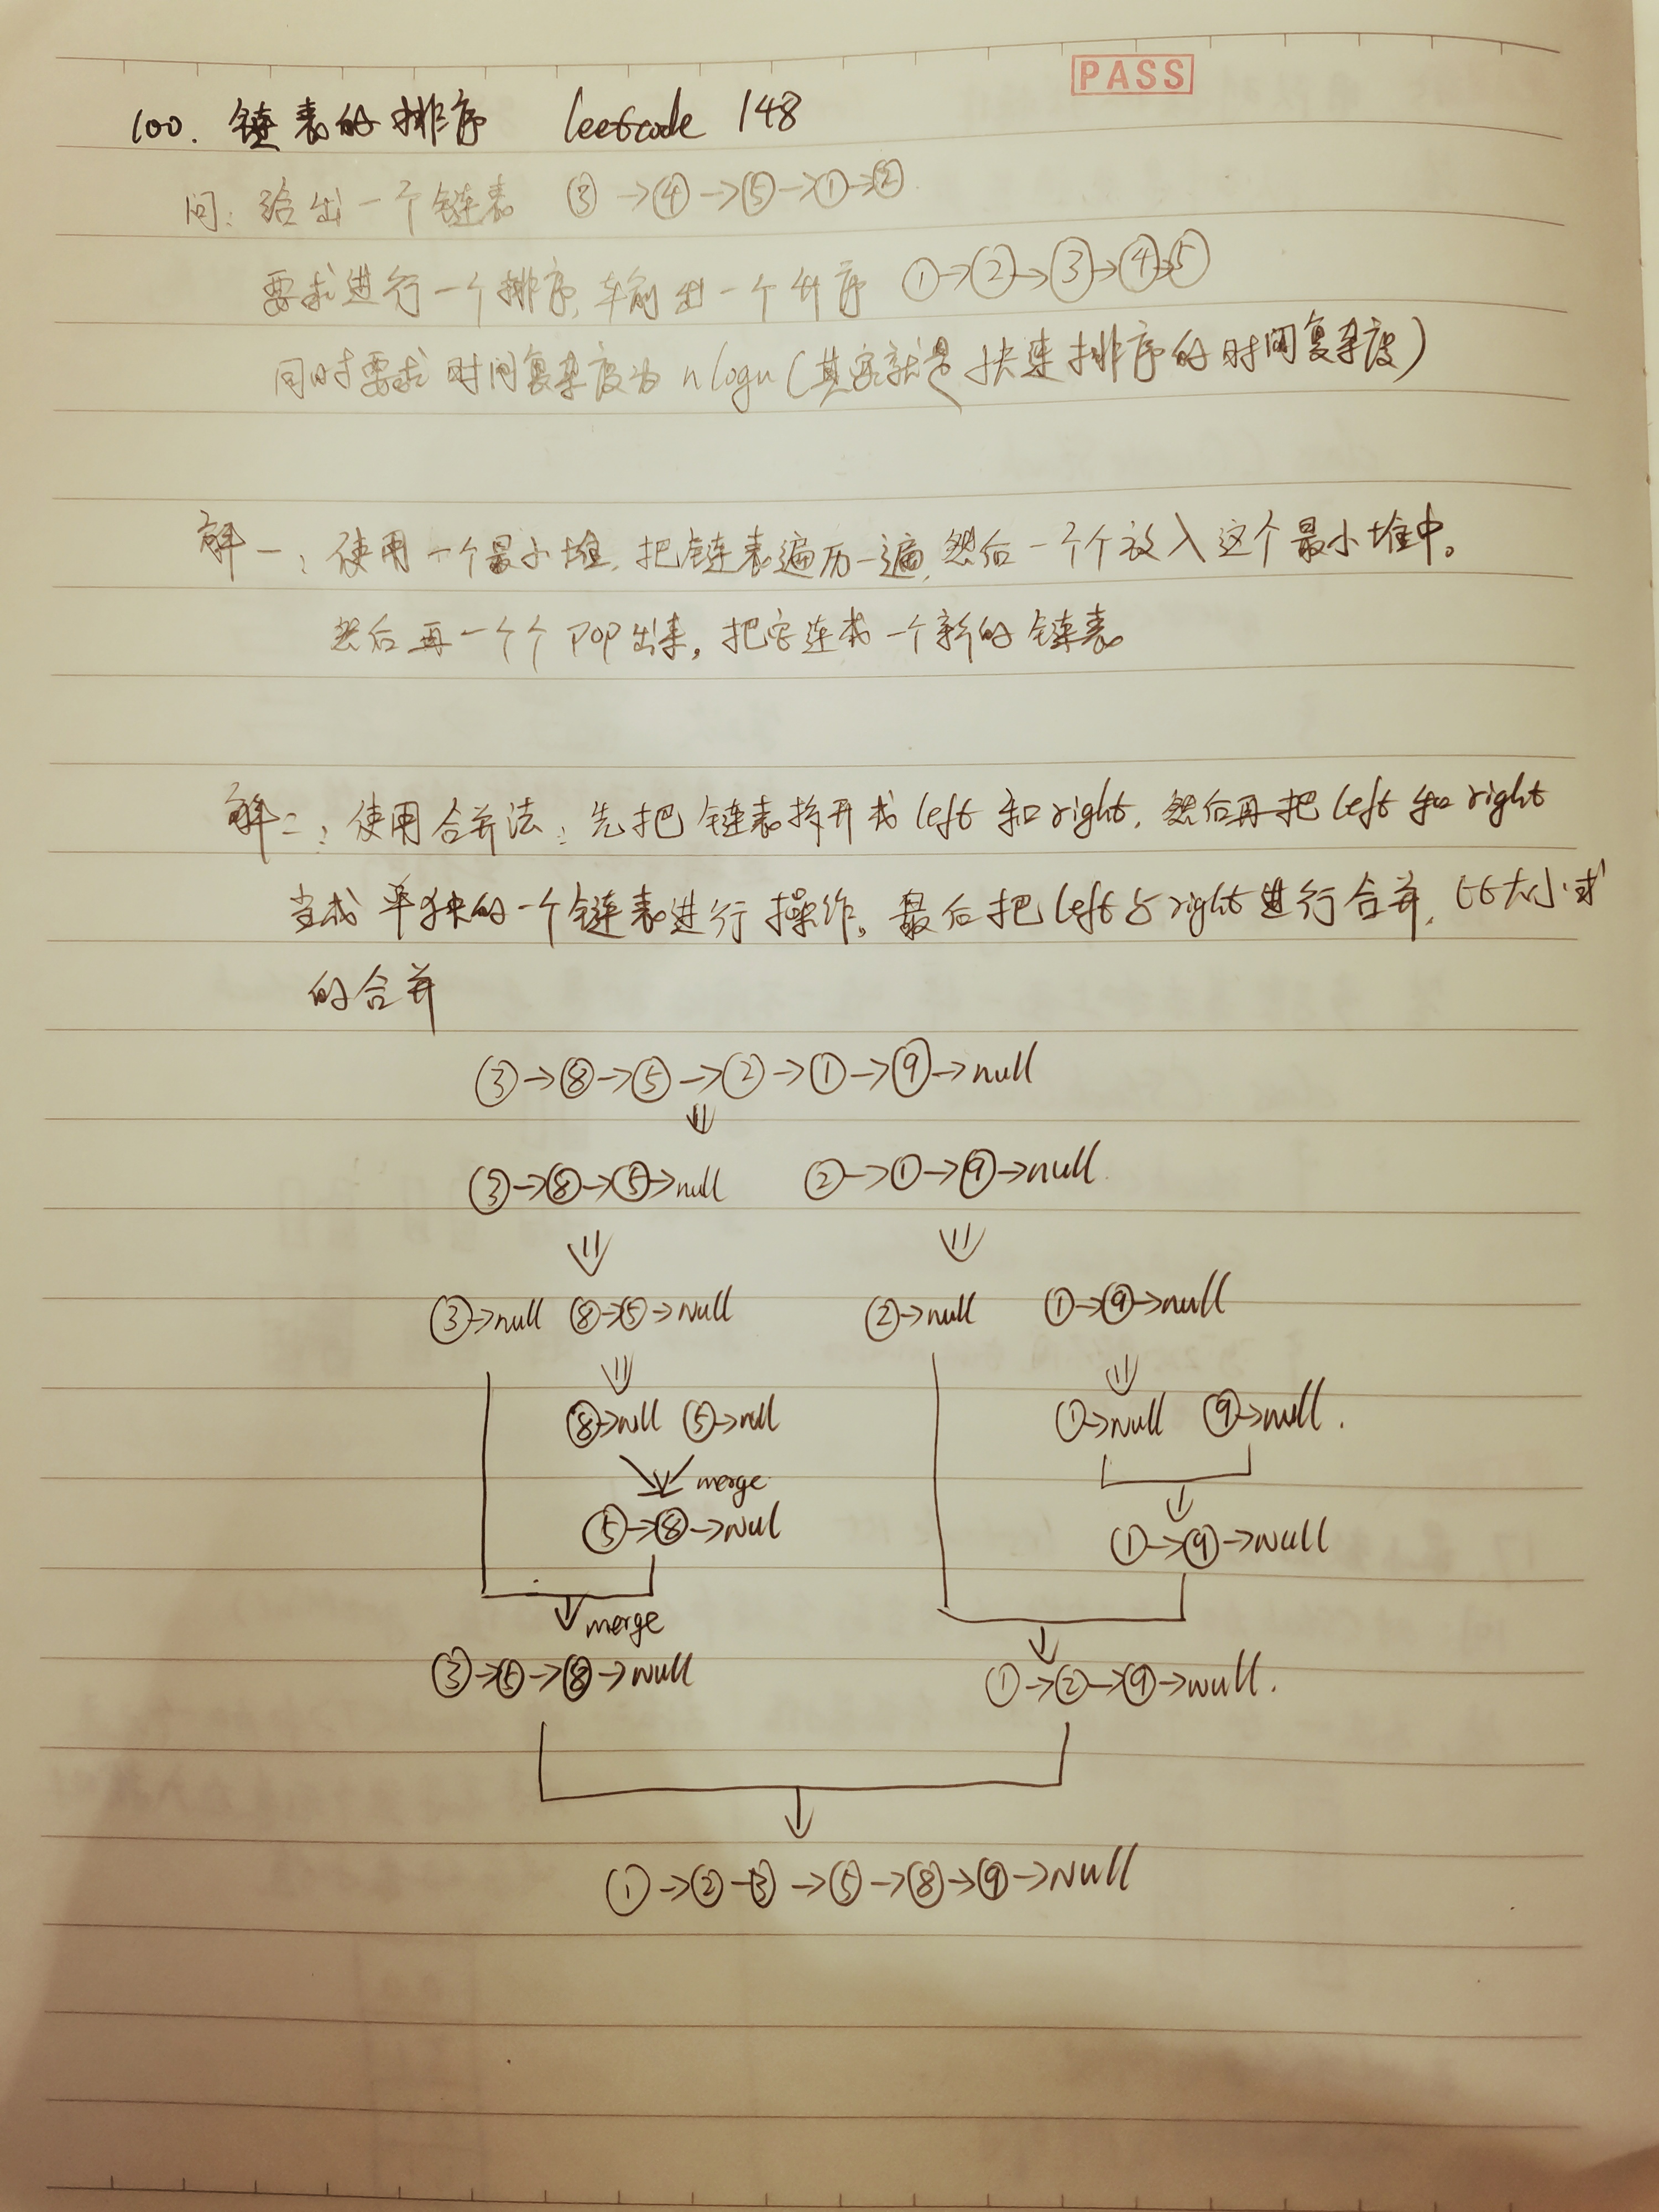 PASS
100. 链表的排序 leetcode 148
问: 给出一个链表 ③→④→⑤→①→②
要求进行一个排序, 输出一个升序 ①→②→③→④→⑤
同时要求时间复杂度为 nlogn (其实就是快速排序的时间复杂度)
解一: 使用一个最小堆, 把链表遍历一遍, 然后一个个放入这个最小堆中。
然后再一个个 pop 出来, 把它连成一个新的链表
解二: 使用合并法: 先把链表拆开成 left 和 right, 然后再把 left 和 right
当成单独的一个链表进行操作。最后把 left 与 right 进行合并, 比大小式
的合并
③→⑧→⑤→②→①→⑨→null
③→⑧→⑤→null ②→①→⑨→null
③→null ⑧→⑤→null ②→null ①→⑨→null
⑧→null ⑤→null ①→null ⑨→null.
merge
⑤→⑧→null ①→⑨→null
merge
③→⑤→⑧→null ①→②→⑨→null.
①→②→③→⑤→⑧→⑨→null